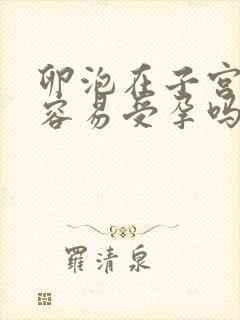 卵泡在子宫
容易受孕吗
羅清泉